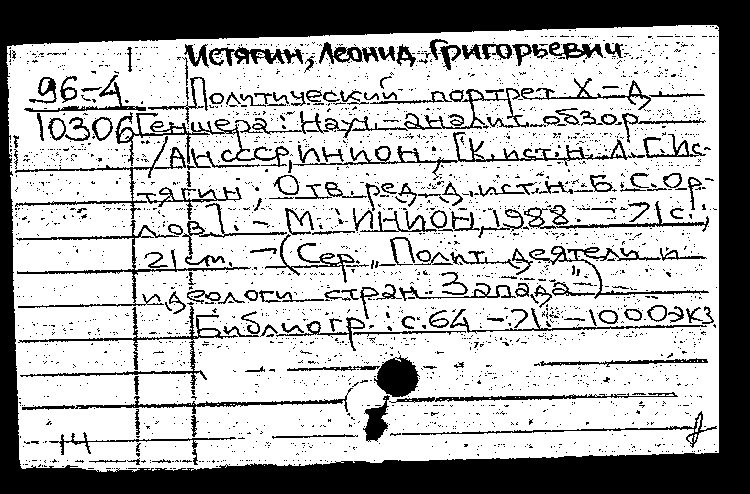 Истягин, Леонид Григорьевич
96-4
10306
Политический портрет Х.-Д.
Геншера: Науч.-аналит. обзор
/АН СССР, ИНИОН; [К.ист.н. Л.Г.Ис-
тягин; Отв. ред. д.ист.н. Б.С.Ор-
лов]. - М.: ИНИОН, 1988. - 71 с.;
21 см. - (Сер. "Полит. деятели и
идеологи стран Запада")
Библиогр.: с.64-71. - 1000 экз
14